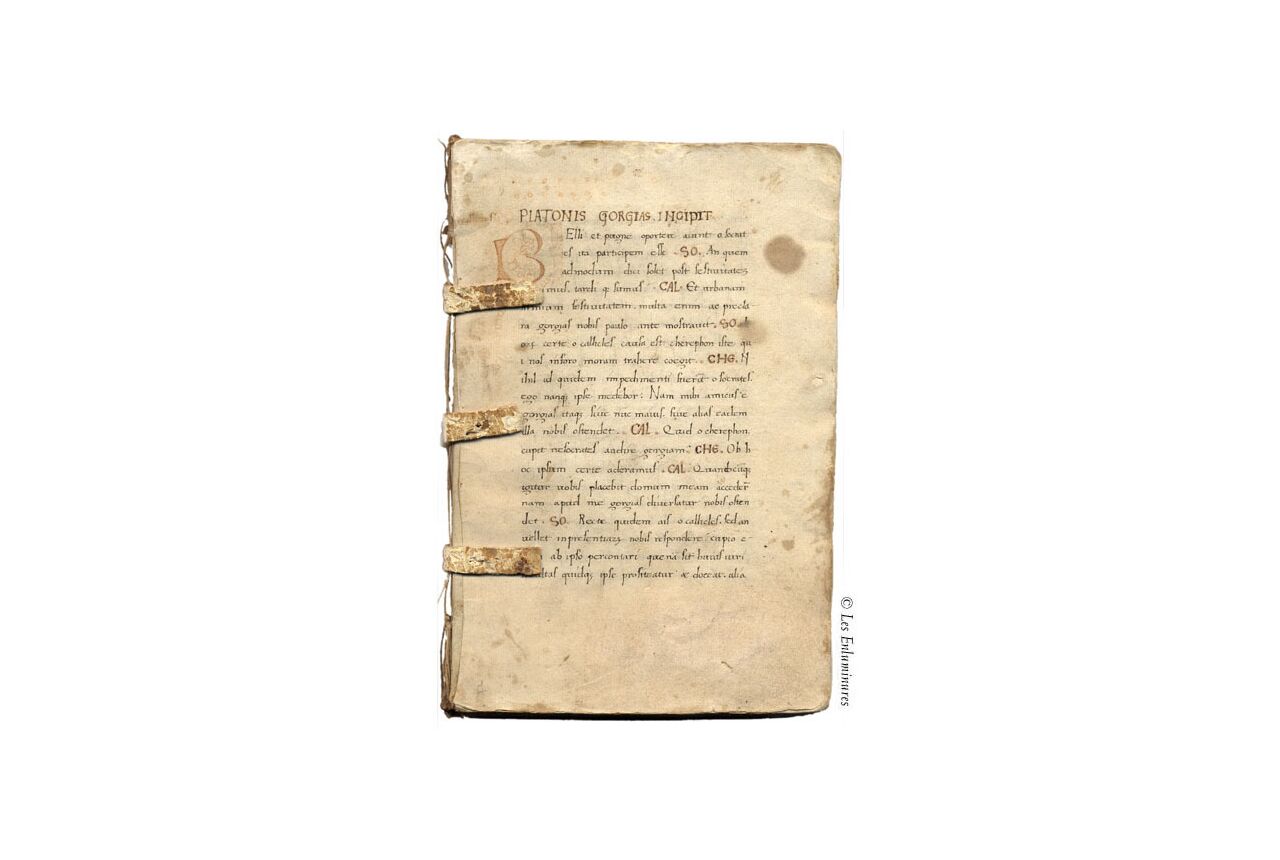 PLATONIS GORGIAS. INCIPIT
BElli et pugne oportere aiunt o socrat
es ita participem esse. SO. An quem
admodum dici solet post festiuitatez
imus. tardi q sumus. CAL. Et urbanam
festiuitatem. multa enim ac precla
ra gorgias nobis paulo ante mostrauit. SO. h
certe o callicles causa est cherephon iste qu
i nos inforo moram trahere coegit. CHE. N
ihil id quidem impedimenti fuerit o socrates.
ego nanq ipse medebor: Nam mihi amicus e
gorgias itaq siue nuc mauis. siue alias eadem
illa nobis ostendet. CAL. Quid o cherephon.
cupit ne socrates audire gorgiam? CHE. Ob h
oc ipsum certe aderamus. CAL. Quandocuq
igitur uobis placebit domum meam accedere
nam apud me gorgias diuersatur nobis osten
det. SO. Recte quidem ais o callicles. sed an
uellet inpresentiaz nobis respondere cupio e
ab ipso percontari quena sit huius uiri
ultas quidq ipse profiteatur ac doceat. alia
© Les Enluminures